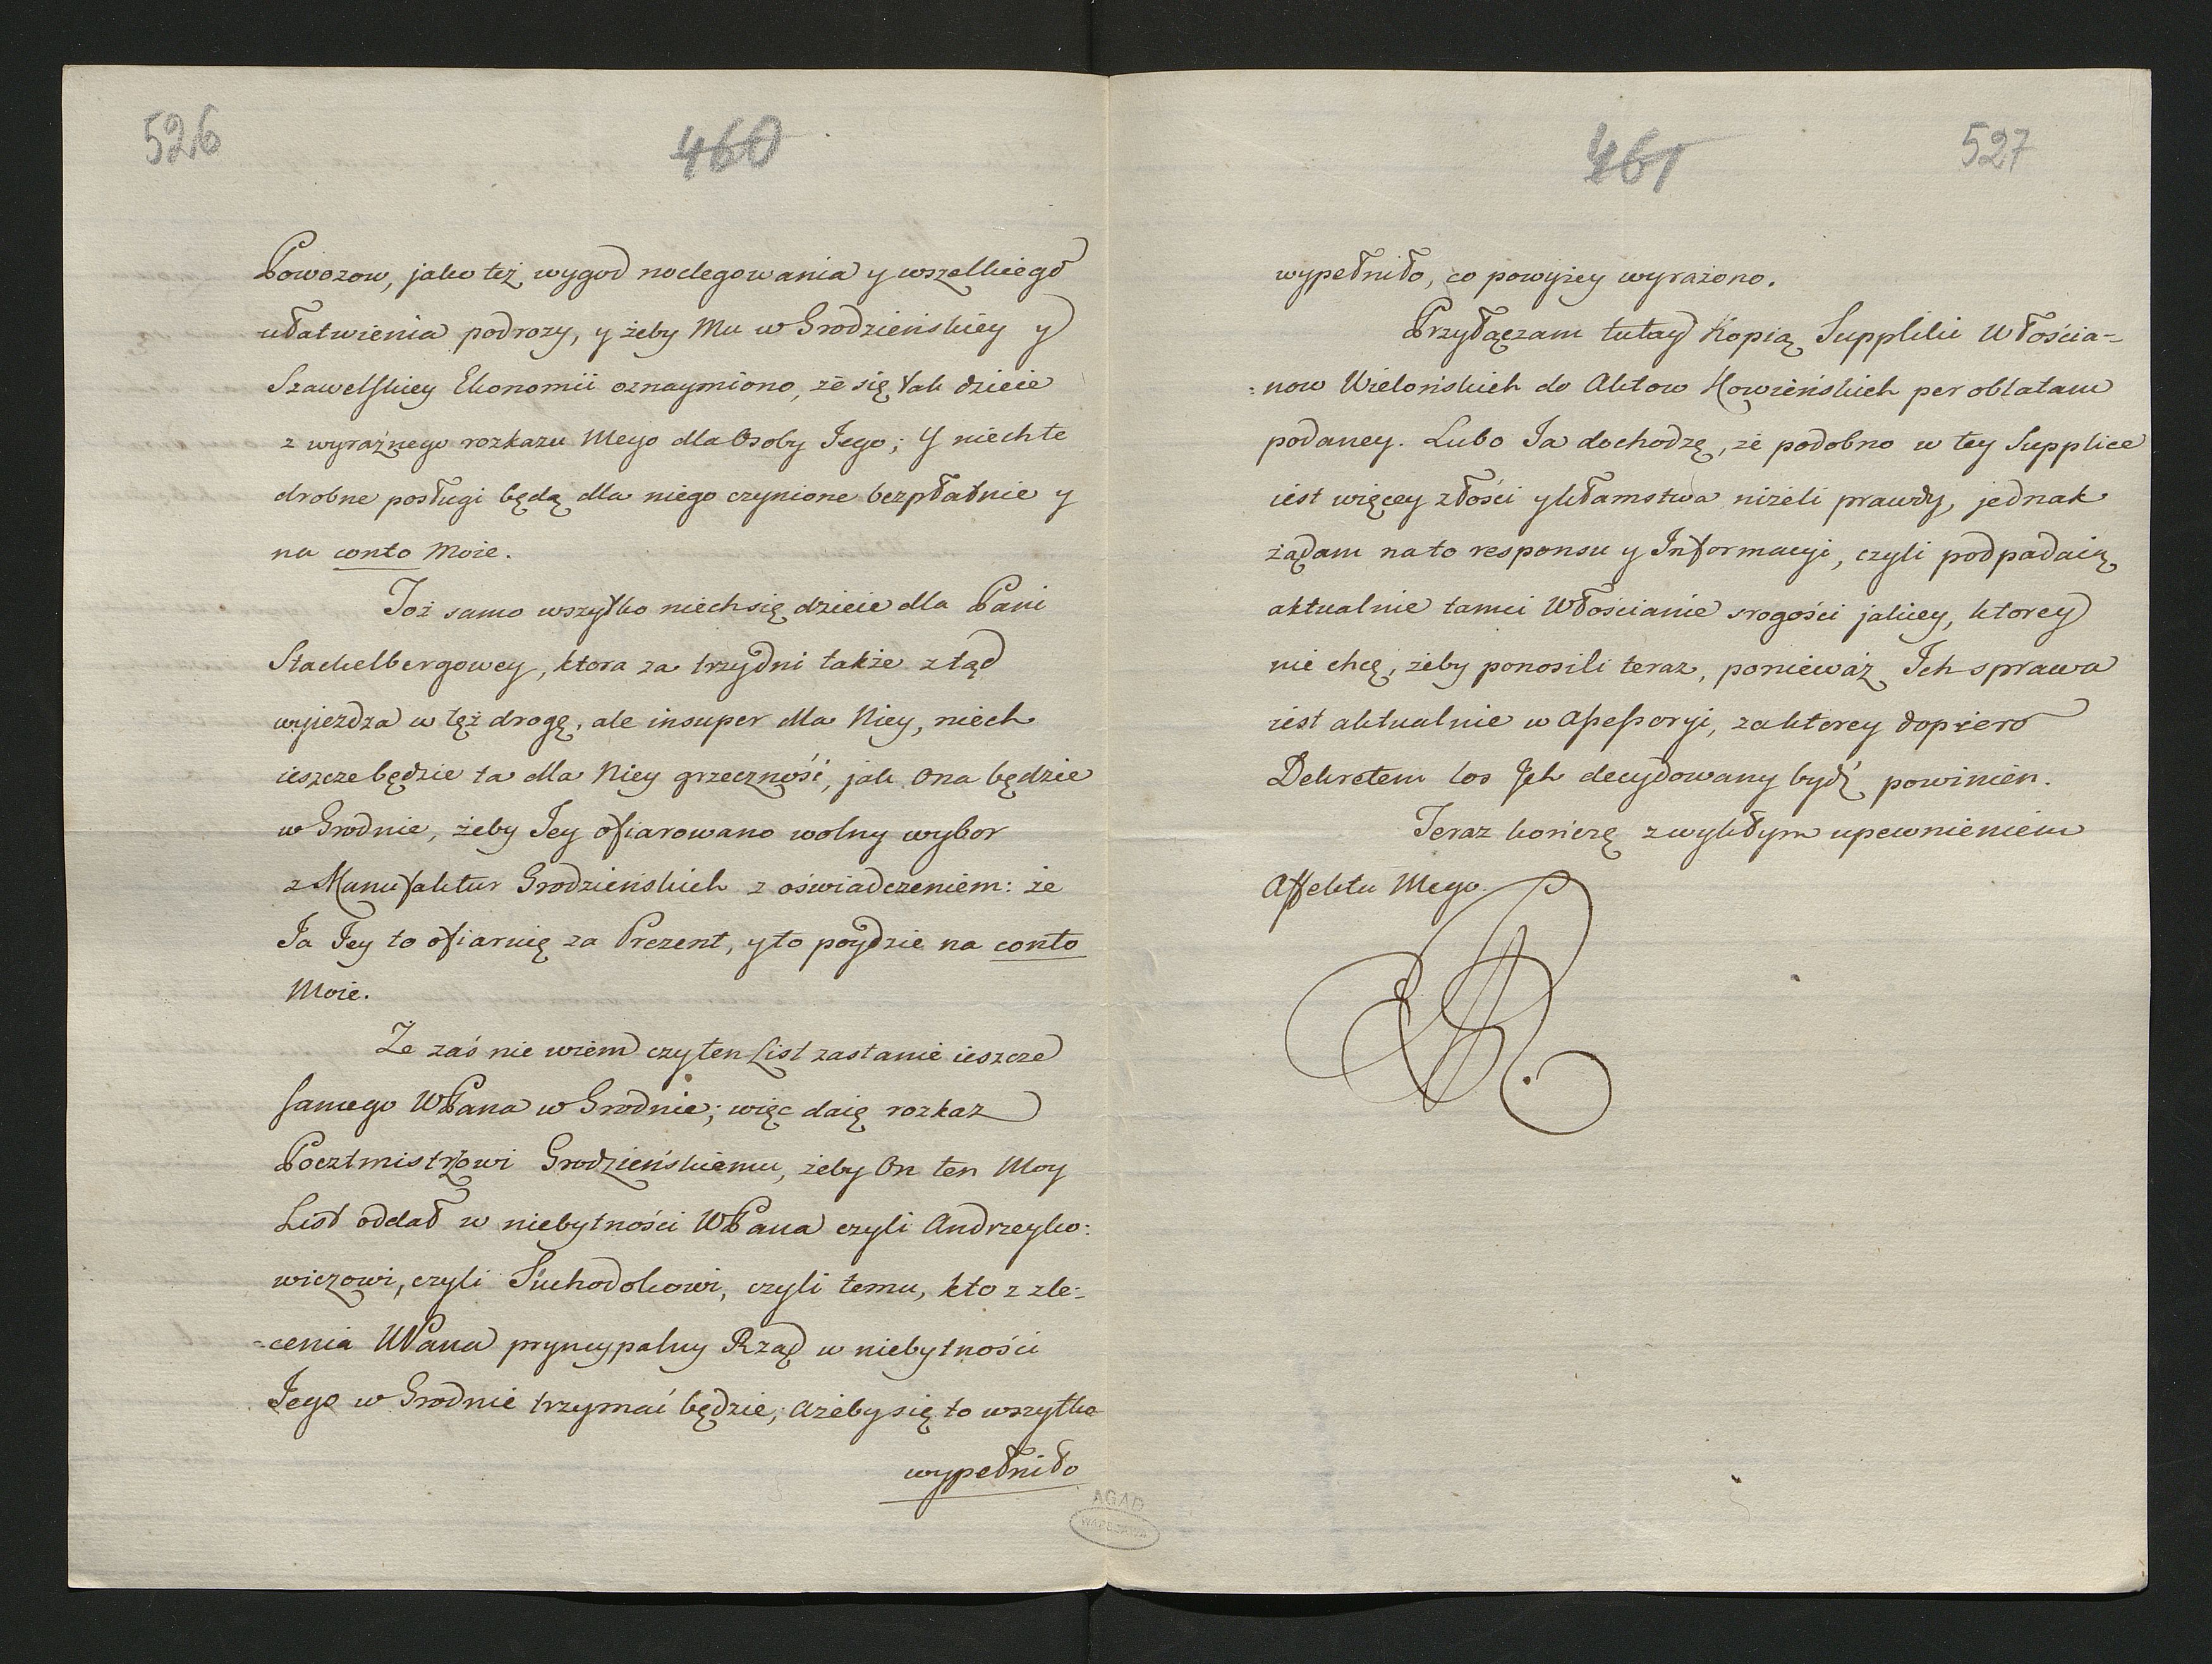 526
460
Powozow, jako też wygod noclegowania y wszelkiego
ułatwienia podrozy, y żeby Mu w Grodzieńskiey y
Szawelskiey Ekonomii oznaymiono, że się tak dzieie
z wyraźnego rozkazu Mego dla Osoby Jego; Y niech te
drobne posługi będą dla niego czynione bezpłatnie y
na conto Moie.
Toż samo wszytko niech się dzieie dla Pani
Stackelbergowey, ktora za trzy dni także ztąd
wyiezdza w tęż drogę, ale insuper dla Niey, niech
ieszcze będzie ta dla Niey grzeczność, jak Ona będzie
w Grodnie, żeby Jey ofiarowano wolny wybor
z Manufaktur Grodzieńskich z oświadczeniem: że
Ja Jey to ofiaruię za Prezent, y to poydzie na conto
Moie.
Że zaś nie wiem czy ten List zastanie ieszcze
samego WPana w Grodnie; więc daię rozkaz
Pocztmistrzowi Grodzieńskiemu, żeby On ten Moy
List oddał w niebytności WPana czyli Andrzeyko:
wiczowi, czyli Suchodolowi, czyli temu, kto z zle:
=cenia WPana pryncypalny Rząd w niebytności
Jego w Grodnie trzymać będzie, ażeby się to wszytko
wypełniło
AGAD
WARSZAWA
461
527
wypełniło, co powyżey wyrażono.
Przyłączam tutay Kopią Suppliki Włościa=
=now Wielońskich do Aktow Kowieńskich per oblatam
podaney. Lubo Ja dochodzę, że podobno w tey Supplice
iest więcey złości y kłamstwa niżeli prawdy, jednak
żądam na to responsu y Informacyi, czyli podpadaią
aktualnie tamci Włościanie srogości jakiey, ktorey
nie chcę, żeby ponosili teraz, ponieważ Ich sprawa
iest aktualnie w Assessoryi, za ktorey dopiero
Dekretem los Ich decydowany bydź powinien.
Teraz kończę zwykłym upewnieniem
Affektu Mego.